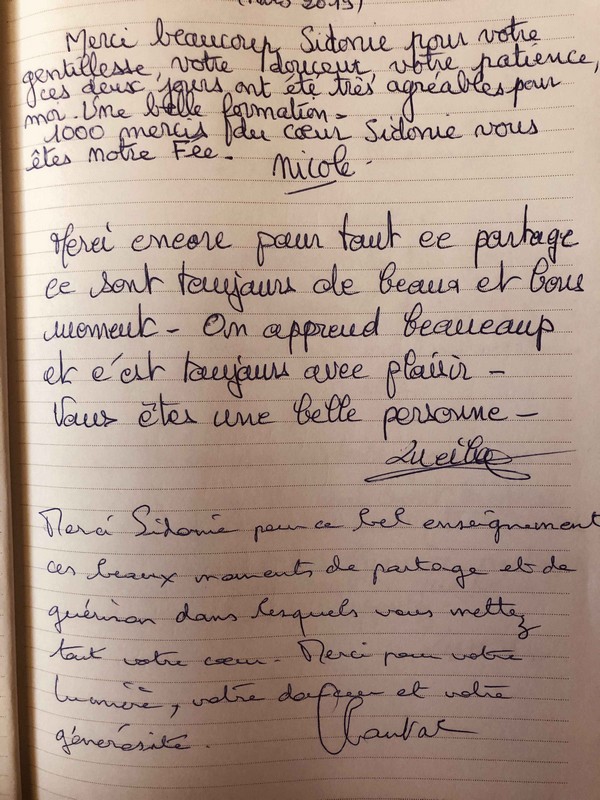 (Mars 2019)
Merci beaucoup Sidonie pour votre
gentillesse, votre douceur, votre patience,
ces deux jours ont été très agréables pour
moi. Une belle formation -
1000 mercis du cœur Sidonie vous
êtes notre Fée -
Nicole -
Merci encore pour tout ce partage
ce sont toujours de beaux et bons
moment - On apprend beaucoup
et c'est toujours avec plaisir -
Vous êtes une belle personne -
Merci Sidonie pour ce bel enseignement
ces beaux moments de partage et de
guérison dans lesquels vous mettez
tout votre cœur. Merci pour votre
lumière, votre douceur et votre
générosité.